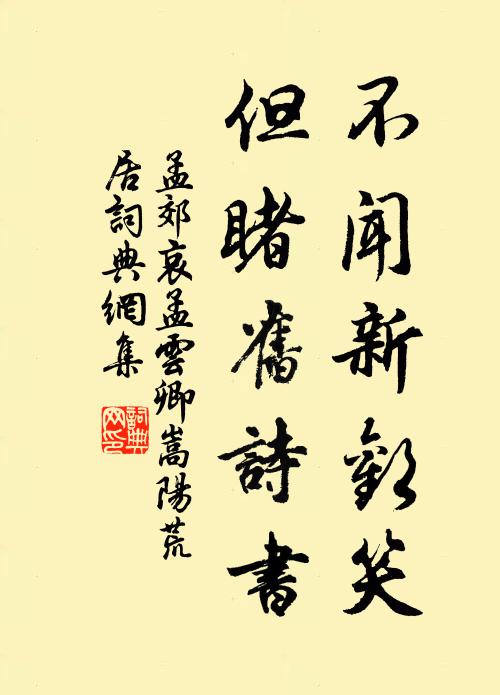 不闻新歡笑
但睹舊詩書
孟郊哀孟雲卿嵩陽荒
居詞典網集
詞典
网印